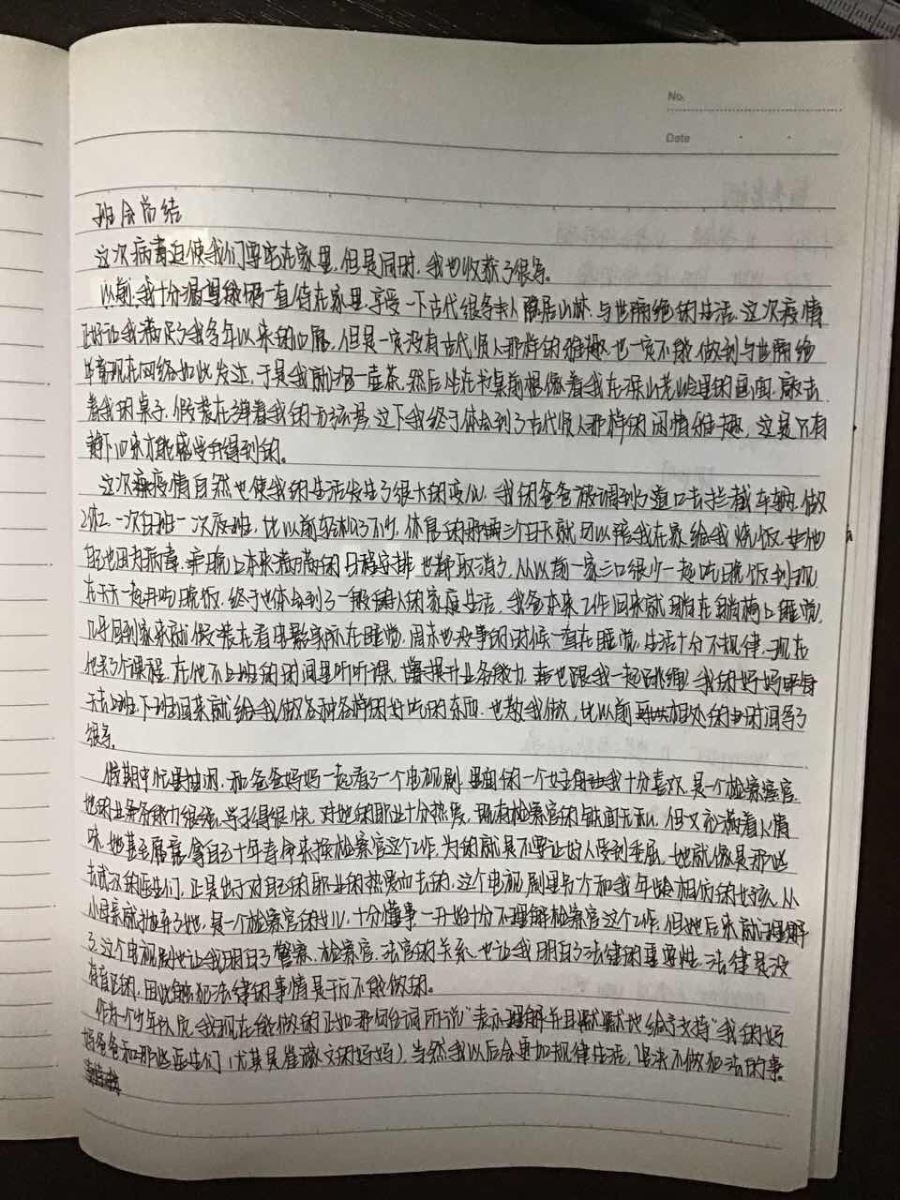 No.
Date
班会总结
这次病毒迫使我们要宅在家里,但是同时,我也收获了很多。
以前,我十分渴望能够一直待在家里,享受一下古代很多夫人隐居山林,与世隔绝的生活,这次疫情
正好让我满足了我多年以来的心愿,但是一定没有古代贤人那样的雅趣,也一定不能做到与世隔绝
毕竟现在网络如此发达,于是我就泡一壶茶,然后坐在书桌前想像着我在深山老林里的画面,敲击
着我的桌子,假装在弹着我的无弦琴,这下我终于体会到了古代贤人那样的闲情雅趣,这是只有
静下心来才能感受得到的。
这次疫情自然也使我的生活发生了很大的变化,我的爸爸被调到了道口去拦截车辆,做
2休2,一次白班一次夜班,比以前轻松了不少,休息的那两三天就可以陪我在家给我烧饭,
因为病毒,晚上本来满满的日程安排也都取消了,从以前一家三口很少一起吃晚饭到现
在天天一起吃晚饭,终于也体会到了一般人的家庭生活,我爸本来工作回来就躺在躺椅上睡觉,
几乎回到家来就假装在看电影实际在睡觉,周末也没事的时候一直在睡觉,生活十分不规律,现在
他买了个课程,在他不上班的时间里听听课,提升业务能力,也跟我一起跳绳,我的妈妈每
天去上班,下班回来就给我做各种各样的好吃的东西,也教我做,比以前相处的时间多了
很多。
假期中忙里抽闲,和爸爸妈妈一起看了一个电视剧,里面的一个女角色我十分喜欢,是一个检察官,
她的业务能力很强,学习得很快,对她的职业十分热爱,既有检察官的铁面无私,但又充满着人情
味,她甚至愿意拿自己十年寿命来换检察官这个工作,为的就是不要让好人受到委屈,她就像是那些
去武汉的医生们,正是出于对自己的职业的热爱而去的,这个电视剧里另一个和我年龄相仿的女孩,从
小母亲就抛弃了她,是一个检察官的女儿,十分懂事,一开始十分不理解检察官这个工作,但她后来就理解
了,这个电视剧也让我明白了警察,检察官,法官的关系,也让我明白了法律的重要性,法律是没
有盲区的,因此触犯法律的事情是千万不能做的。
作为一个少年队员,我现在能做的正如那句台词所说"表示理解并且默默地给予支持"我的妈
妈爸爸和那些医生们(尤其是崔瀚文的妈妈),当然我以后会更加规律生活,坚决不做犯法的事。